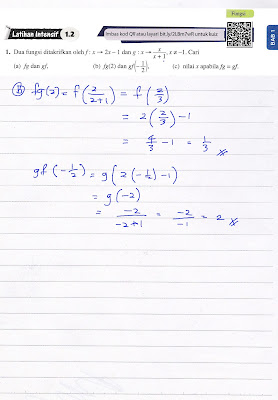 Fungsi
Latihan Intensif 1.2
Imbas kod QR atau layari bit.ly/2LBm7wR untuk kuiz
BAB 1
1. Dua fungsi ditakrifkan oleh f : x → 2x − 1 dan g : x → x/(x + 1), x ≠ −1. Cari
(a) fg dan gf, (b) fg(2) dan gf(−1/2), (c) nilai x apabila fg = gf.
fg(2) = f(2/(2+1)) = f(2/3)
= 2(2/3) − 1
= 4/3 − 1 = 1/3
gf(−1/2) = g(2(−1/2) − 1)
= g(−2)
= −2/(−2+1) = −2/−1 = 2